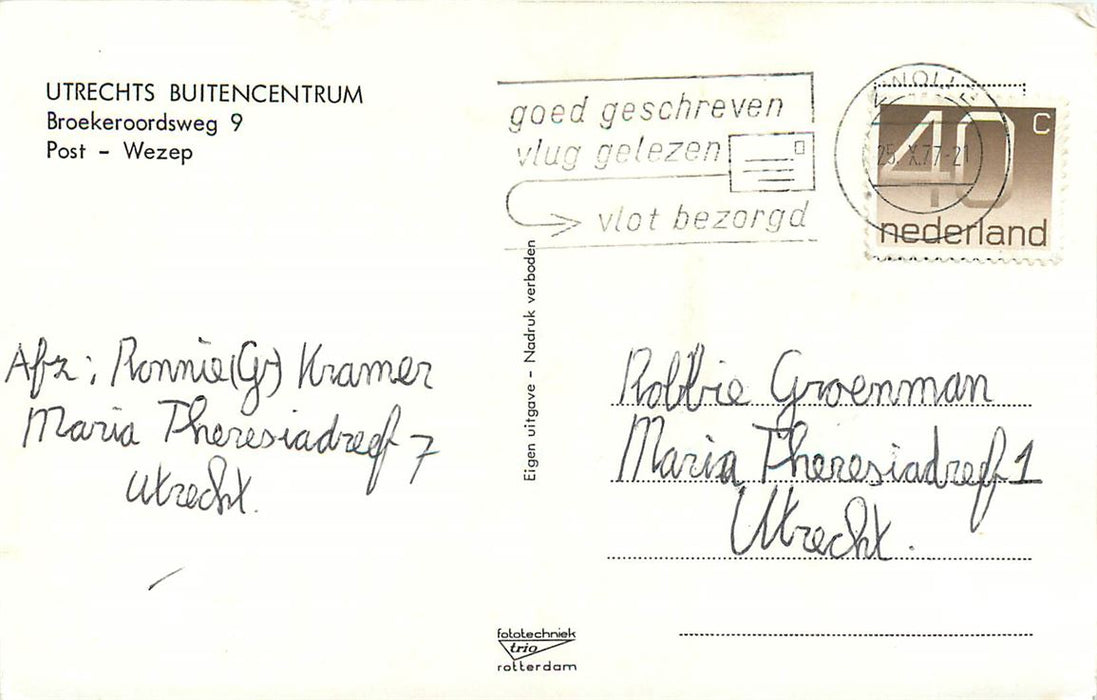 UTRECHTS BUITENCENTRUM
Broekeroordsweg 9
Post - Wezep
goed geschreven
vlug gelezen
vlot bezorgd
ZWOLLE
25.X.77-21
40 c
nederland
Eigen uitgave - Nadruk verboden
Afz: Ronnie (Gr) Kramer
Maria Theresiadreef 7
Utrecht.
Robbie Groenman
Maria Theresiadreef 1
Utrecht.
fototechniek
trio
rotterdam